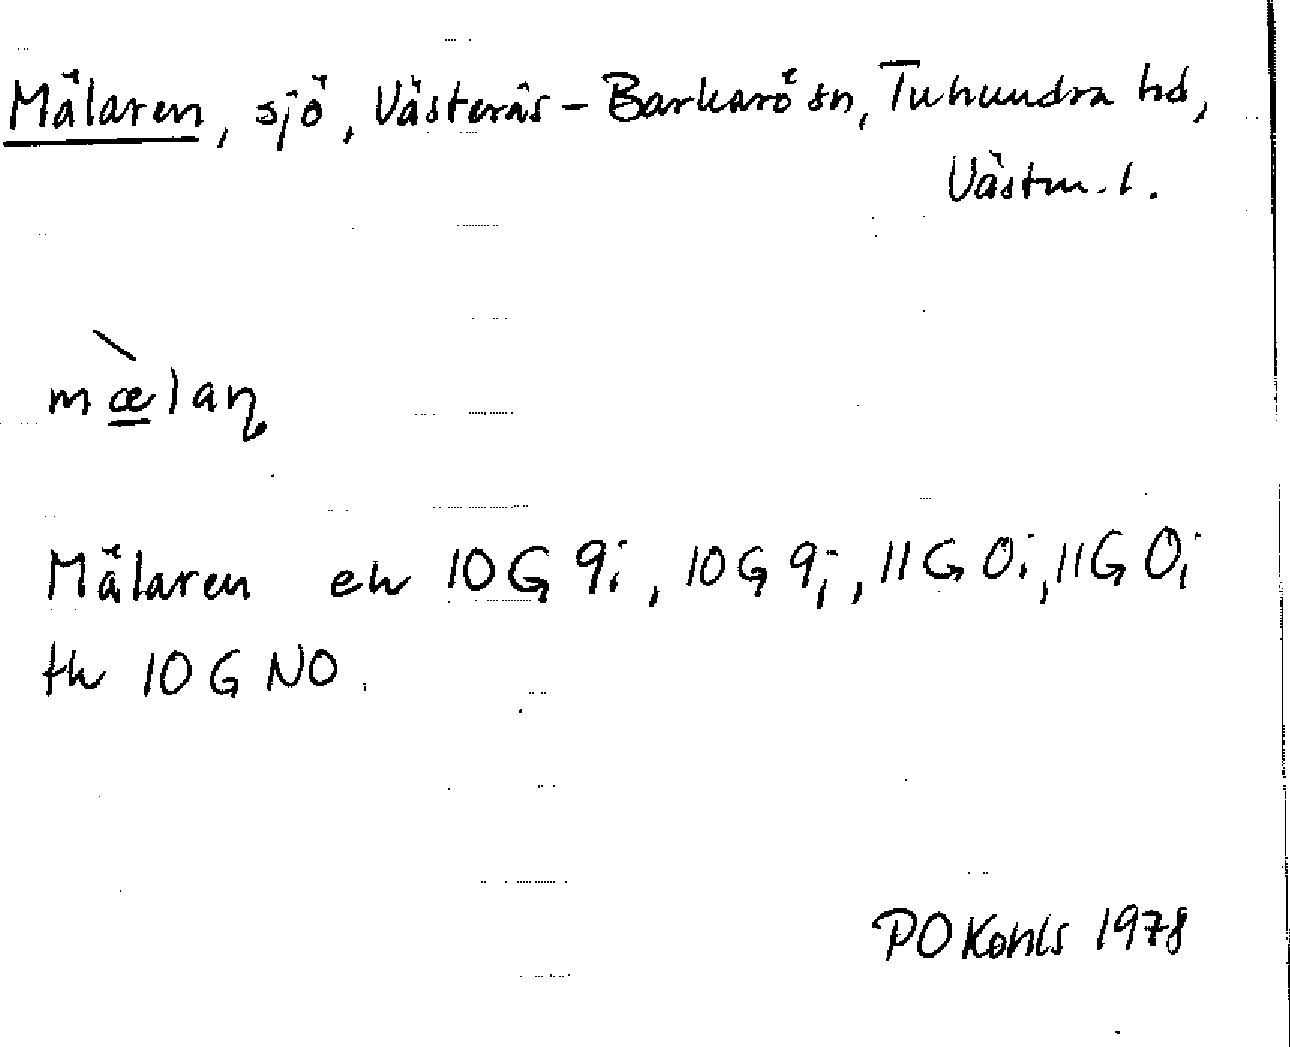 Mälaren, sjö, Västerås-Barkarö sn, Tuhundra hd,
Västm. l.
mælaņ
Mälaren ek 10G 9i, 10G 9j, 11G 0i, 11G 0j
tk 10G NO.
PO Kohls 1978